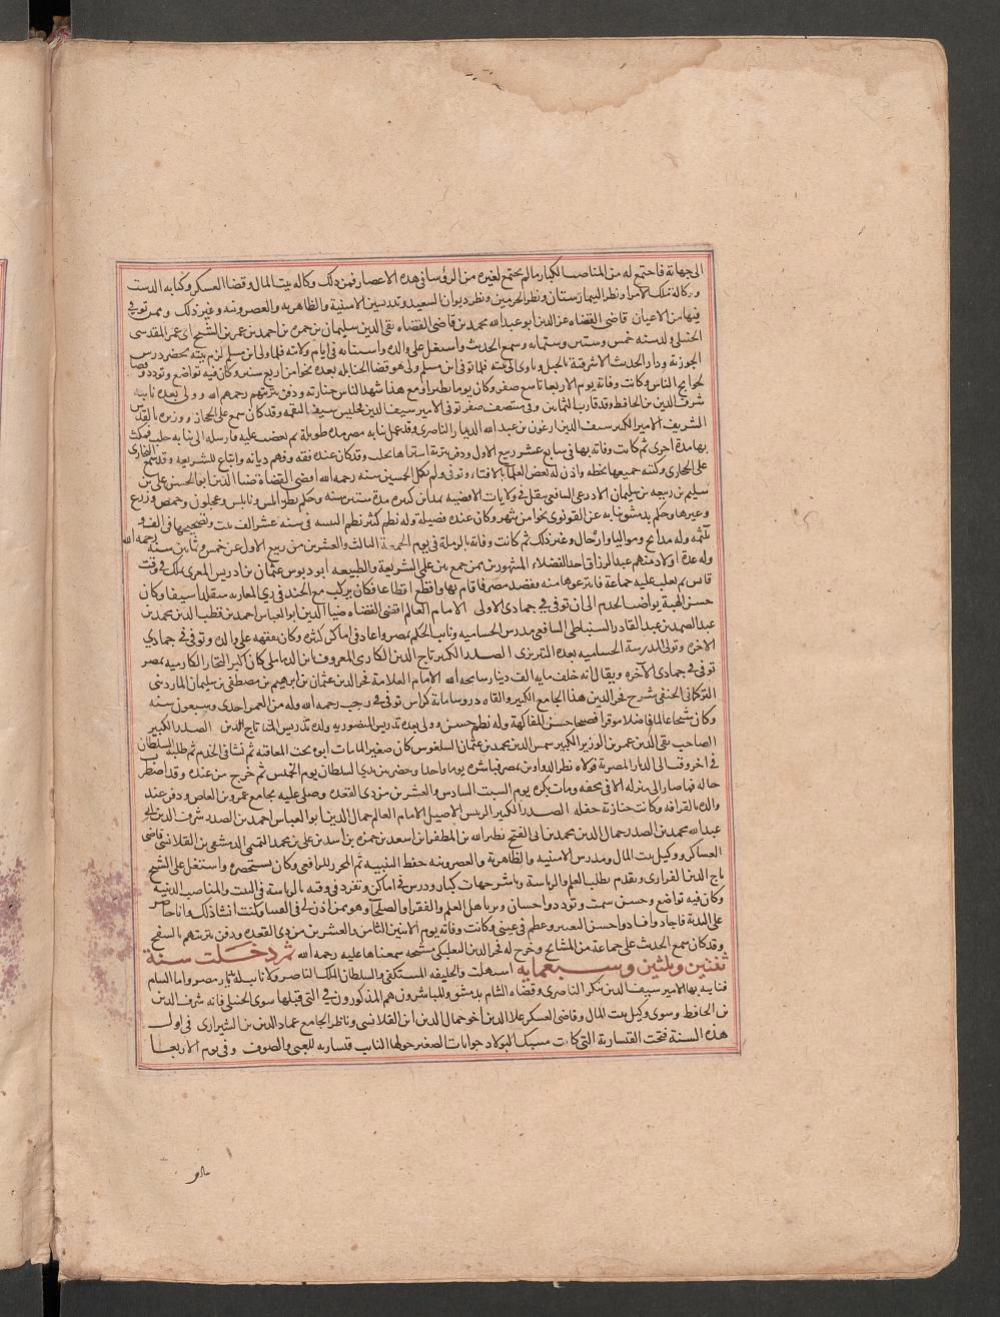 الى جهاته فاجتمع له من المناصب الكبار مالم يجتمع لغيره من الرؤسا في هذه الاعصار فمن ذلك وكاله بيت المال وقضا العسكر وكتابه الدست
ووكاله ملك الامرا ونظر البيمارستان ونظر الحرمين ونظر ديوان السعيد وتدريس الامينية والظاهريه والعصرونيه وغير ذلك وممن توفي
فيها من الاعيان قاضي القضاه عز الدين ابو عبد الله محمد بن قاضي القضاه تقي الدين سليمان بن حمزه بن احمد بن عمر بن الشيخ ابي عمر المقدسي
الحنبلي ولد سنه خمس وستين وستمايه وسمع الحديث واشتغل على والده واستنابه في ايام ولايته فلما ولي ابن مسلم لزم بيته يحضر درس
الجوزيه ودار الحديث الاشرفية بالجبل وياوي الى بيته فلما توفي ابن مسلم ولي هو قضا الحنابله بعده نحوا من اربع سنين وكان فيه تواضع وتودد وقضا
لحوايج الناس وكانت وفاته يوم الاربعا تاسع صفر وكان يوما مطيرا ومع هذا شهد الناس جنازته ودفن بتربتهم رحمهم الله وولي بعده نايبه
شرف الدين بن الحافظ وقد قارب الثمانين وفي منتصف صفر توفي الامير سيف الدين قجليس سيف النقمه وقد كان سمع على الحجار ووزيره بالقدس
الشريف الامير الكبير سيف الدين ارغون بن عبد الله الدويدار الناصري وقد عمل نيابه مصر مده طويلة ثم غضب عليه فارسله الى نيابه حلب فمكث
بها مدة اخرى ثم كانت وفاته بها في سابع عشر ربيع الاول ودفن بتربة اشتراها بحلب وقد كان عنده فقه وفهم ديانه واتباع للشريعه وقد سمع البخاري
على الحجاري وكتبه جميعه بخطه واذن له بعض العلما بالافتاء وتوفي ولم يكمل الخمسين سنه رحمه الله اقضى القضاة ضيا الدين ابو الحسن علي بن
سليم بن ربيعه بن سليمان الاذرعي الشافعي تنقل في ولايات الاقضيه بمداين كثيره مدة ستين سنه وحكم بطرابلس ونابلس وعجلون وحمص وزرع
وغيرها وحكم بدمشق نيابه عن القونوي نحوا من شهر وكان عنده فضيلة وله نظم كثير نظم التنبيه في سته عشر الف بيت وتصحيحها في الف و
ثلثمه وله مدايح ومواليا وازجال وغير ذلك ثم كانت وفاته بالرملة في يوم الجمعة الثالث والعشرين من ربيع الاول عن خمس وثمانين سنه رحمه الله
وله عدة اولاد منهم عبد الرزاق احد الفضلاء المشهورين ممن جمع بين علمي الشريعة والطبيعه ابو دبوس عثمان بن ادريس المغربي ملك في وقت
قابس ثم تغلب عليه جماعة فانتزعوها منه فقصد مصر فاقام بها واقطع اقطاعا فكان يركب مع الجند في زي المغاربه متقلدا سيفا وكان
حسن الهيبة يواضب الخدم الى ان توفي في جمادى الاولى الامام العالم اقضى القضاه ضيا الدين ابو العباس احمد بن قطب الدين محمد بن
عبد الصمد بن عبد القادر السنباطي الشافعي مدرس الحساميه ونايب الحكم بمصر واعاد في اماكن كثيره وكان تفقه على والده وتوفي في جمادي
الاخره وتولى المدرسة الحساميه بعده التبريزي الصدر الكبير تاج الدين الكارمي المعروف بابن الدماملي كان اكبر التجار الكارميه بمصر
توفي في جمادى الآخره ويقال انه خلف مايه الف دينار سامحه الله الامام العلامة فخر الدين عثمان بن ابرهيم بن مصطفى بن سليمان المارديني
التركماني الحنفي شرح فخر الدين هذا الجامع الكبير والقاه دروسا مايه كراس توفي في رجب رحمه الله وله من العمر احدى وسبعون سنه
وكان شجاعا عالما فاضلا موقرا فصيحا حسن المفاكهة وله نظم حسن وولي بعده تدريس المنصوريه ولده تدريس اخي تاج الدين الصدر الكبير
الصاحب تقي الدين عمر بن الوزير الكبير شمس الدين محمد بن عثمان السلعوس كان صغيرا لما مات ابوه تحت المعاقبه ثم نشا في الخدم ثم طلبه السلطان
في اخر وقت الى الديار المصرية فولاه نظر الدواوين بمصر فباشره يوما واحدا وحضر بين يدي السلطان يوم الخميس ثم خرج من عنده وقد اضطر
حاله فما صار الى منزله الا في محفه ومات بكره يوم السبت السادس والعشرين من ذي القعده وصلي عليه بجامع عمرو بن العاص ودفن عند
والده بالقرافه وكانت جنازته حفله الصدر الكبير الريس الاصيل الامام العالم جمال الدين ابو العباس احمد بن الصدر شرف الدين ابي
عبد الله محمد بن الصدر جمال الدين محمد بن ابي الفتح نصر الله بن المظفر بن اسعد بن حمزه بن اسد بن علي بن محمد التميمي الدمشقي بن القلانسي قاضي
العساكر ووكيل بيت المال ومدرس الامينيه والظاهرية والعصرونيه حفظ التنبيه ثم المحرر للرافعي وكان يستحضره واشتغل على الشيخ
تاج الدين الفزاري وتقدم بطلب العلم والرياسة وباشر جهات كبار ودرس في اماكن وتفرد في وقته بالرياسة في البيت والمناصب الدينية
وكان فيه تواضع وحسن سمت وتودد واحسان وبر باهل العلم والفقرا والصلحا وهو ممن اذن لي في الفتيا وكنت انشا ذلك وانا حاضر
على البديه فاجاد وافاد واحسن التعبير وعظم في عيني وكانت وفاته يوم الاثنين الثامن والعشرين من ذي القعده ودفن بتربتهم بالسفح
وقد كان سمع الحديث على جماعة من المشايخ وخرج له فخر الدين البعلبكي مشيخه سمعناها عليه رحمه الله ثم دخلت سنة
ثنتين وثلثين وسبعمايه استهلت والخليفه المستكفي والسلطان الملك الناصر ولا نايب له بديار مصر واما الشام
فنايبه بها الامير سيف الدين تنكز الناصري وقضاه الشام بدمشق والمباشرون هم المذكورون في التي قبلها سوى الحنبلي فانه شرف الدين
بن الحافظ وسوى وكيل بيت المال وقاضي العسكر علا الدين اخو جمال الدين ابن القلانسي وناظر الجامع عماد الدين بن الشيرازي في اول
هذه السنة فتحت القيسارية التي كانت مسبك الفولاد جوا باب الصغير حولها النايب قيساريه للعبي والصوف وفي يوم الاربعا